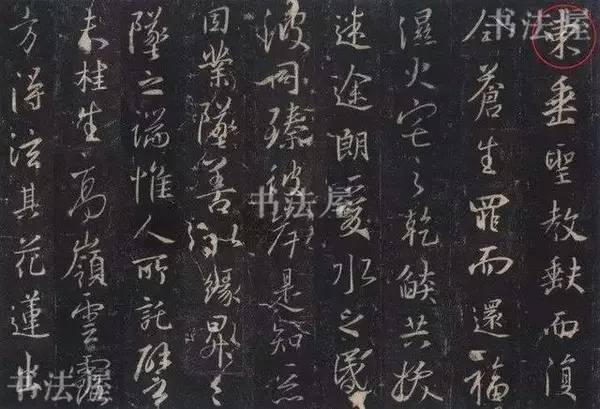 東垂聖教缺而復
全蒼生罪而還福
濕火宅之乾燄共拔
迷途朗愛水之昏
波同臻彼岸是知惡
因業墜善以緣昇々
墜之端惟人所託譬
夫桂生高嶺雲露
方得泫其花蓮出
书法屋
书法屋
书法屋